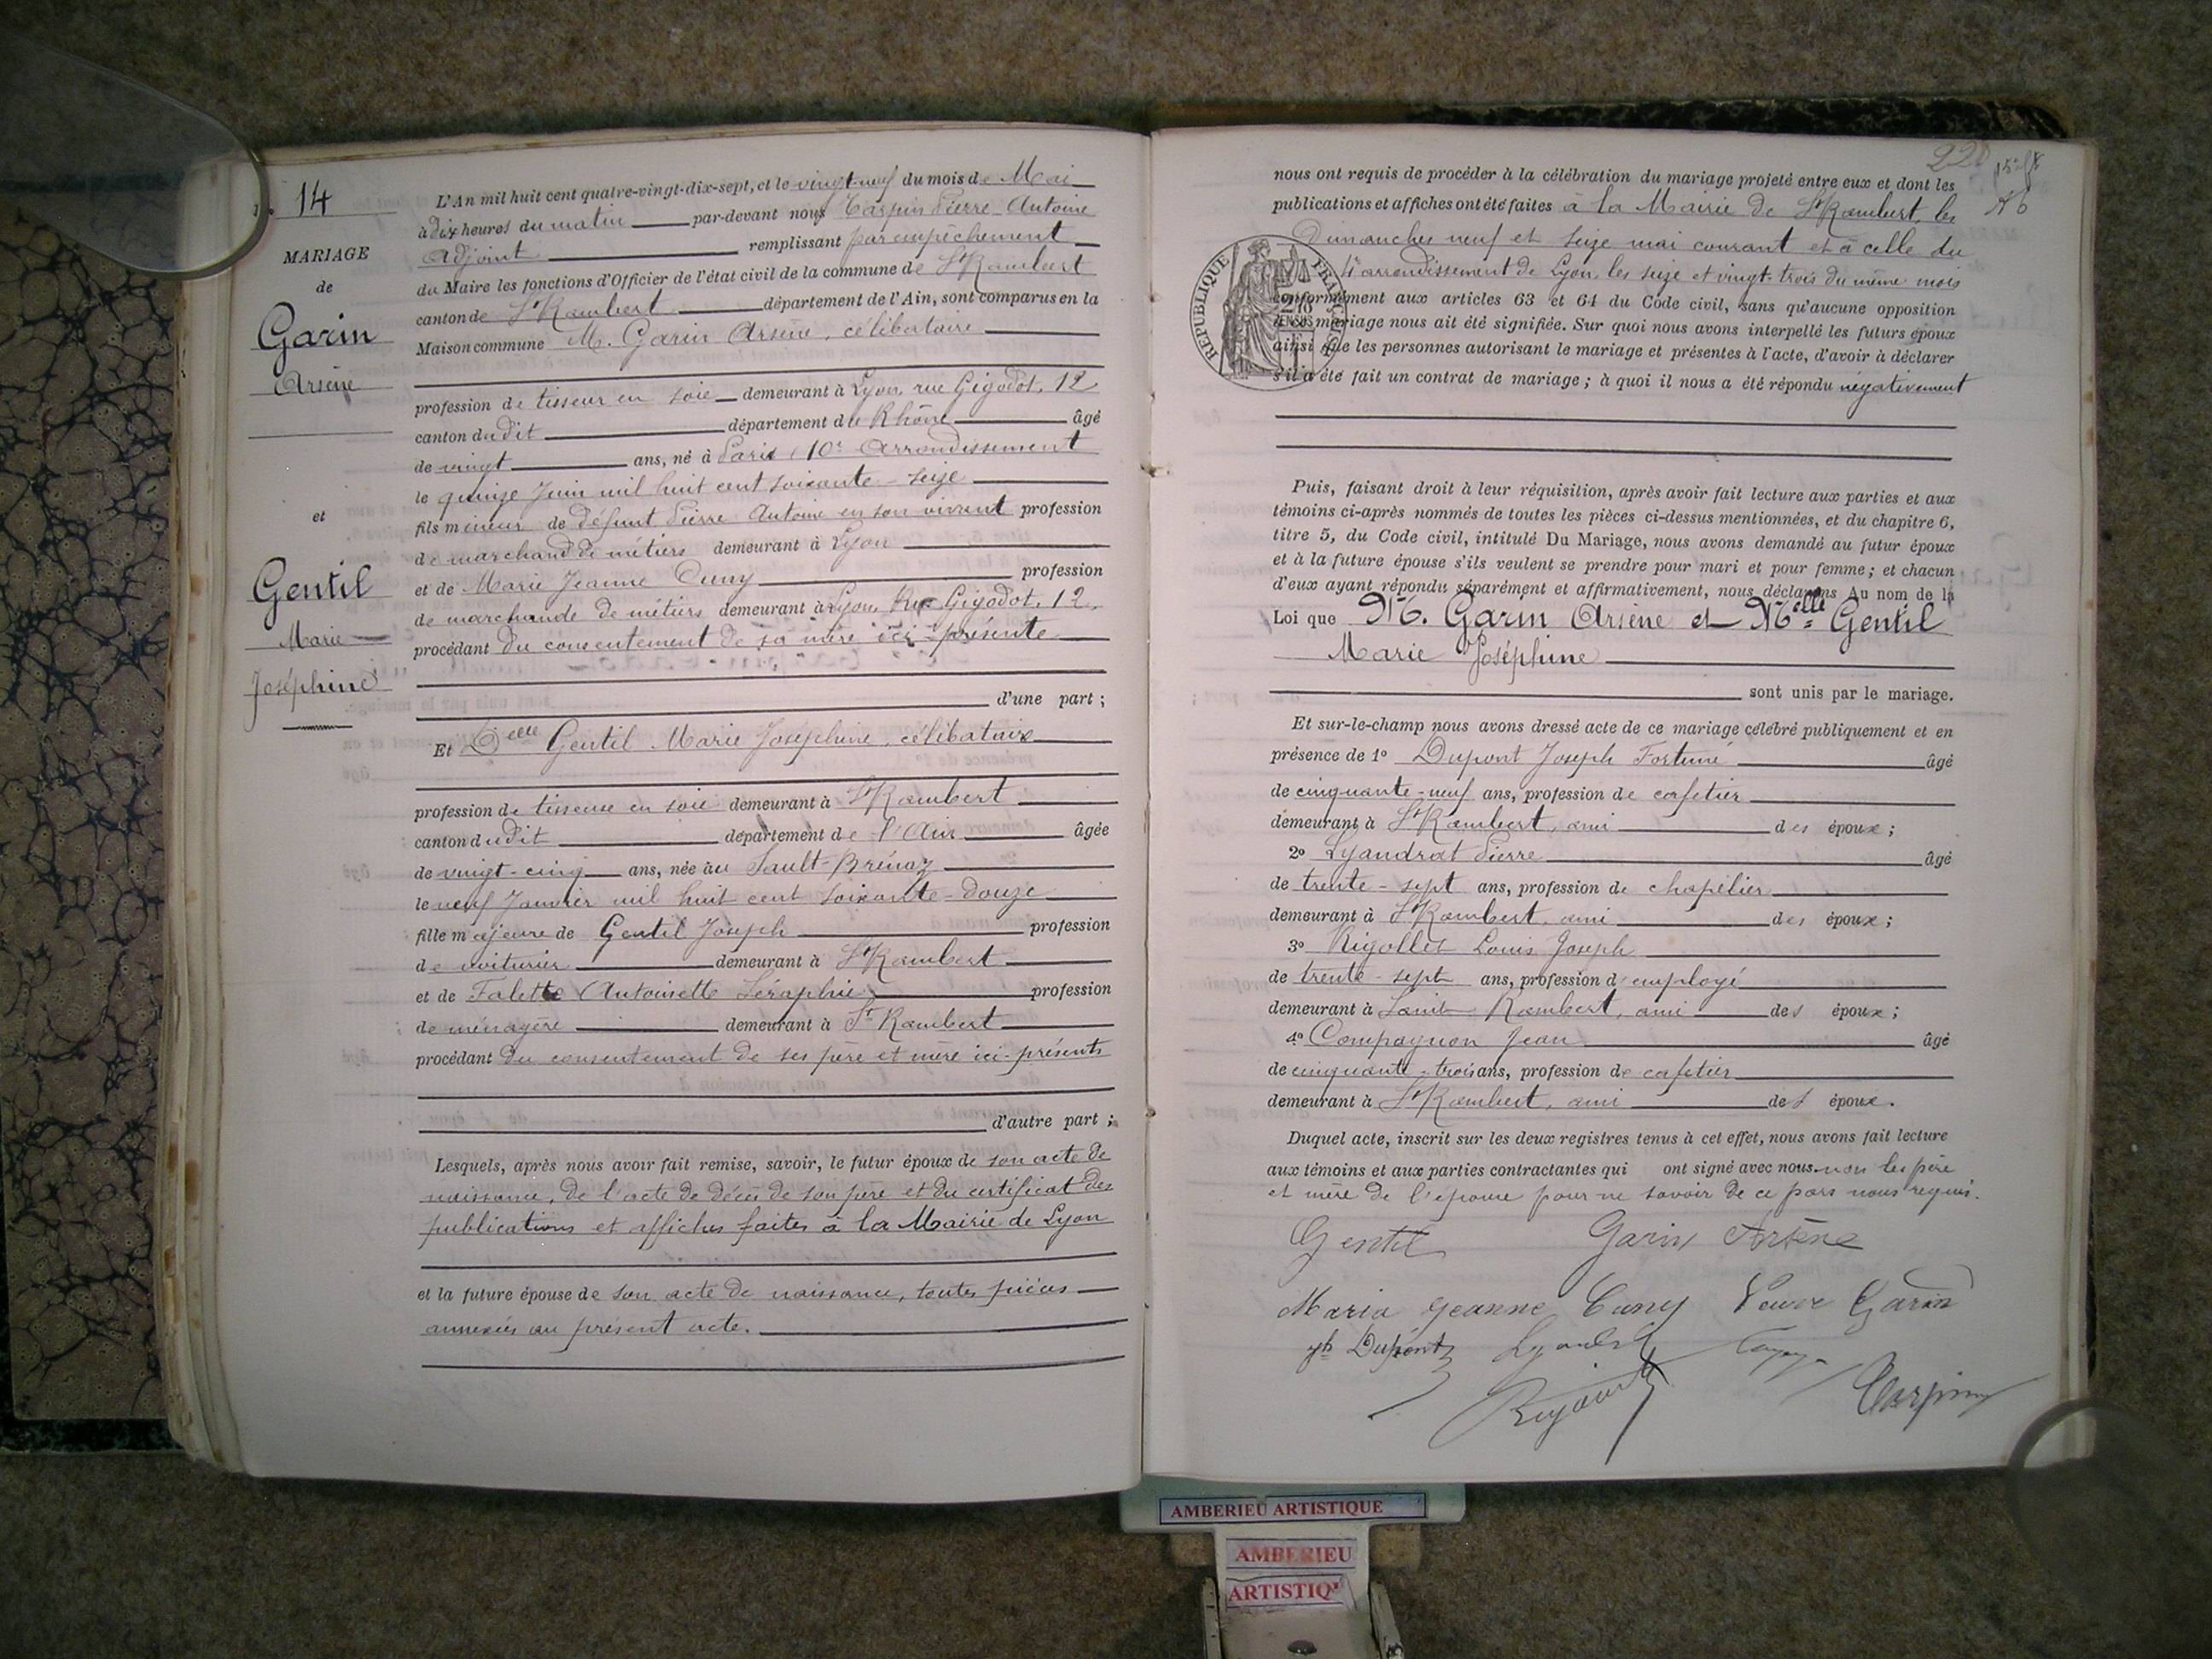 14
MARIAGE
de
Garin
Arsène
et
Gentil
Marie
Joséphine
L'An mil huit cent quatre-vingt-dix-sept, et le vingt-neuf du mois de Mai
à dix heures du matin par-devant nous Carpin Pierre Antoine
adjoint remplissant par empêchement
du Maire les fonctions d'Officier de l'état civil de la commune de St Rambert
canton de St Rambert département de l'Ain, sont comparus en la
Maison commune M. Garin Arsène, célibataire
profession de tisseur en soie demeurant à Lyon, rue Gigodot, 12
canton dudit département du Rhône âgé
de vingt ans, né à Paris, 10e arrondissement
le quinze Juin mil huit cent soixante-seize
fils mineur de défunt Pierre Antoine en son vivant profession
de marchand de métiers demeurant à Lyon
et de Marie Jeanne Cuny profession
de marchande de métiers demeurant à Lyon Rue Gigodot, 12,
procédant du consentement de sa mère ici-présente
d'une part ;
Et Delle Gentil Marie Joséphine, célibataire
profession de tisseuse en soie demeurant à St Rambert
canton dudit département de l'Ain âgée
de vingt-cinq ans, née au Sault-Brénaz
le neuf Janvier mil huit cent soixante-douze
fille majeure de Gentil Joseph profession
de voiturier demeurant à St Rambert
et de Falette Antoinette Séraphie profession
de ménagère demeurant à St Rambert
procédant du consentement de ses père et mère ici-présents
d'autre part ;
Lesquels, après nous avoir fait remise, savoir, le futur époux de son acte de
naissance, de l'acte de décès de son père et du certificat des
publications et affiches faites à la Mairie de Lyon
et la future épouse de son acte de naissance, toutes pièces
annexées au présent acte.
220
nous ont requis de procéder à la célébration du mariage projeté entre eux et dont les
publications et affiches ont été faites à la Mairie de St Rambert, les
Dimanches neuf et seize mai courant et à celle du
4e arrondissement de Lyon, les seize et vingt-trois du même mois
conformément aux articles 63 et 64 du Code civil, sans qu'aucune opposition
à ce mariage nous ait été signifiée. Sur quoi nous avons interpellé les futurs époux
ainsi que les personnes autorisant le mariage et présentes à l'acte, d'avoir à déclarer
s'il a été fait un contrat de mariage ; à quoi il nous a été répondu négativement
REPUBLIQUE FRANÇAISE
Puis, faisant droit à leur réquisition, après avoir fait lecture aux parties et aux
témoins ci-après nommés de toutes les pièces ci-dessus mentionnées, et du chapitre 6,
titre 5, du Code civil, intitulé Du Mariage, nous avons demandé au futur époux
et à la future épouse s'ils veulent se prendre pour mari et pour femme ; et chacun
d'eux ayant répondu séparément et affirmativement, nous déclarons Au nom de la
Loi que M. Garin Arsène et Melle Gentil
Marie Joséphine
sont unis par le mariage.
Et sur-le-champ nous avons dressé acte de ce mariage célébré publiquement et en
présence de 1o Dupont Joseph Fortuné âgé
de cinquante-neuf ans, profession de cafetier
demeurant à St Rambert, ami des époux ;
2o Lyandrat Pierre âgé
de trente-sept ans, profession de chapelier
demeurant à St Rambert, ami des époux ;
3o Rigollet Louis Joseph
de trente-sept ans, profession d'employé
demeurant à Saint Rambert, ami des époux ;
4o Compagnon Jean âgé
de cinquante-trois ans, profession de cafetier
demeurant à St Rambert, ami des époux.
Duquel acte, inscrit sur les deux registres tenus à cet effet, nous avons fait lecture
aux témoins et aux parties contractantes qui ont signé avec nous non les père
et mère de l'épouse pour ne savoir de ce pars nous requis.
Gentil Garin Arsène
Maria Jeanne Cuny Veuve Garin
Dupont Lyandrat
Carpin
AMBERIEU ARTISTIQUE
AMBERIEU
ARTISTIQ